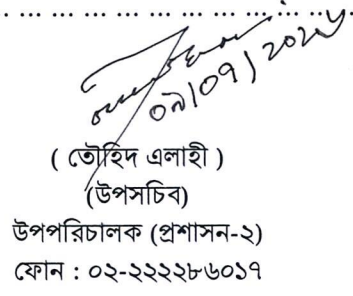 ... ... ... ... ... ... ... ... ... ... ...
০৯/০৭/২০২৬
( তৌহিদ এলাহী )
(উপসচিব)
উপপরিচালক (প্রশাসন-২)
ফোন : ০২-২২২২৮৬০১৭